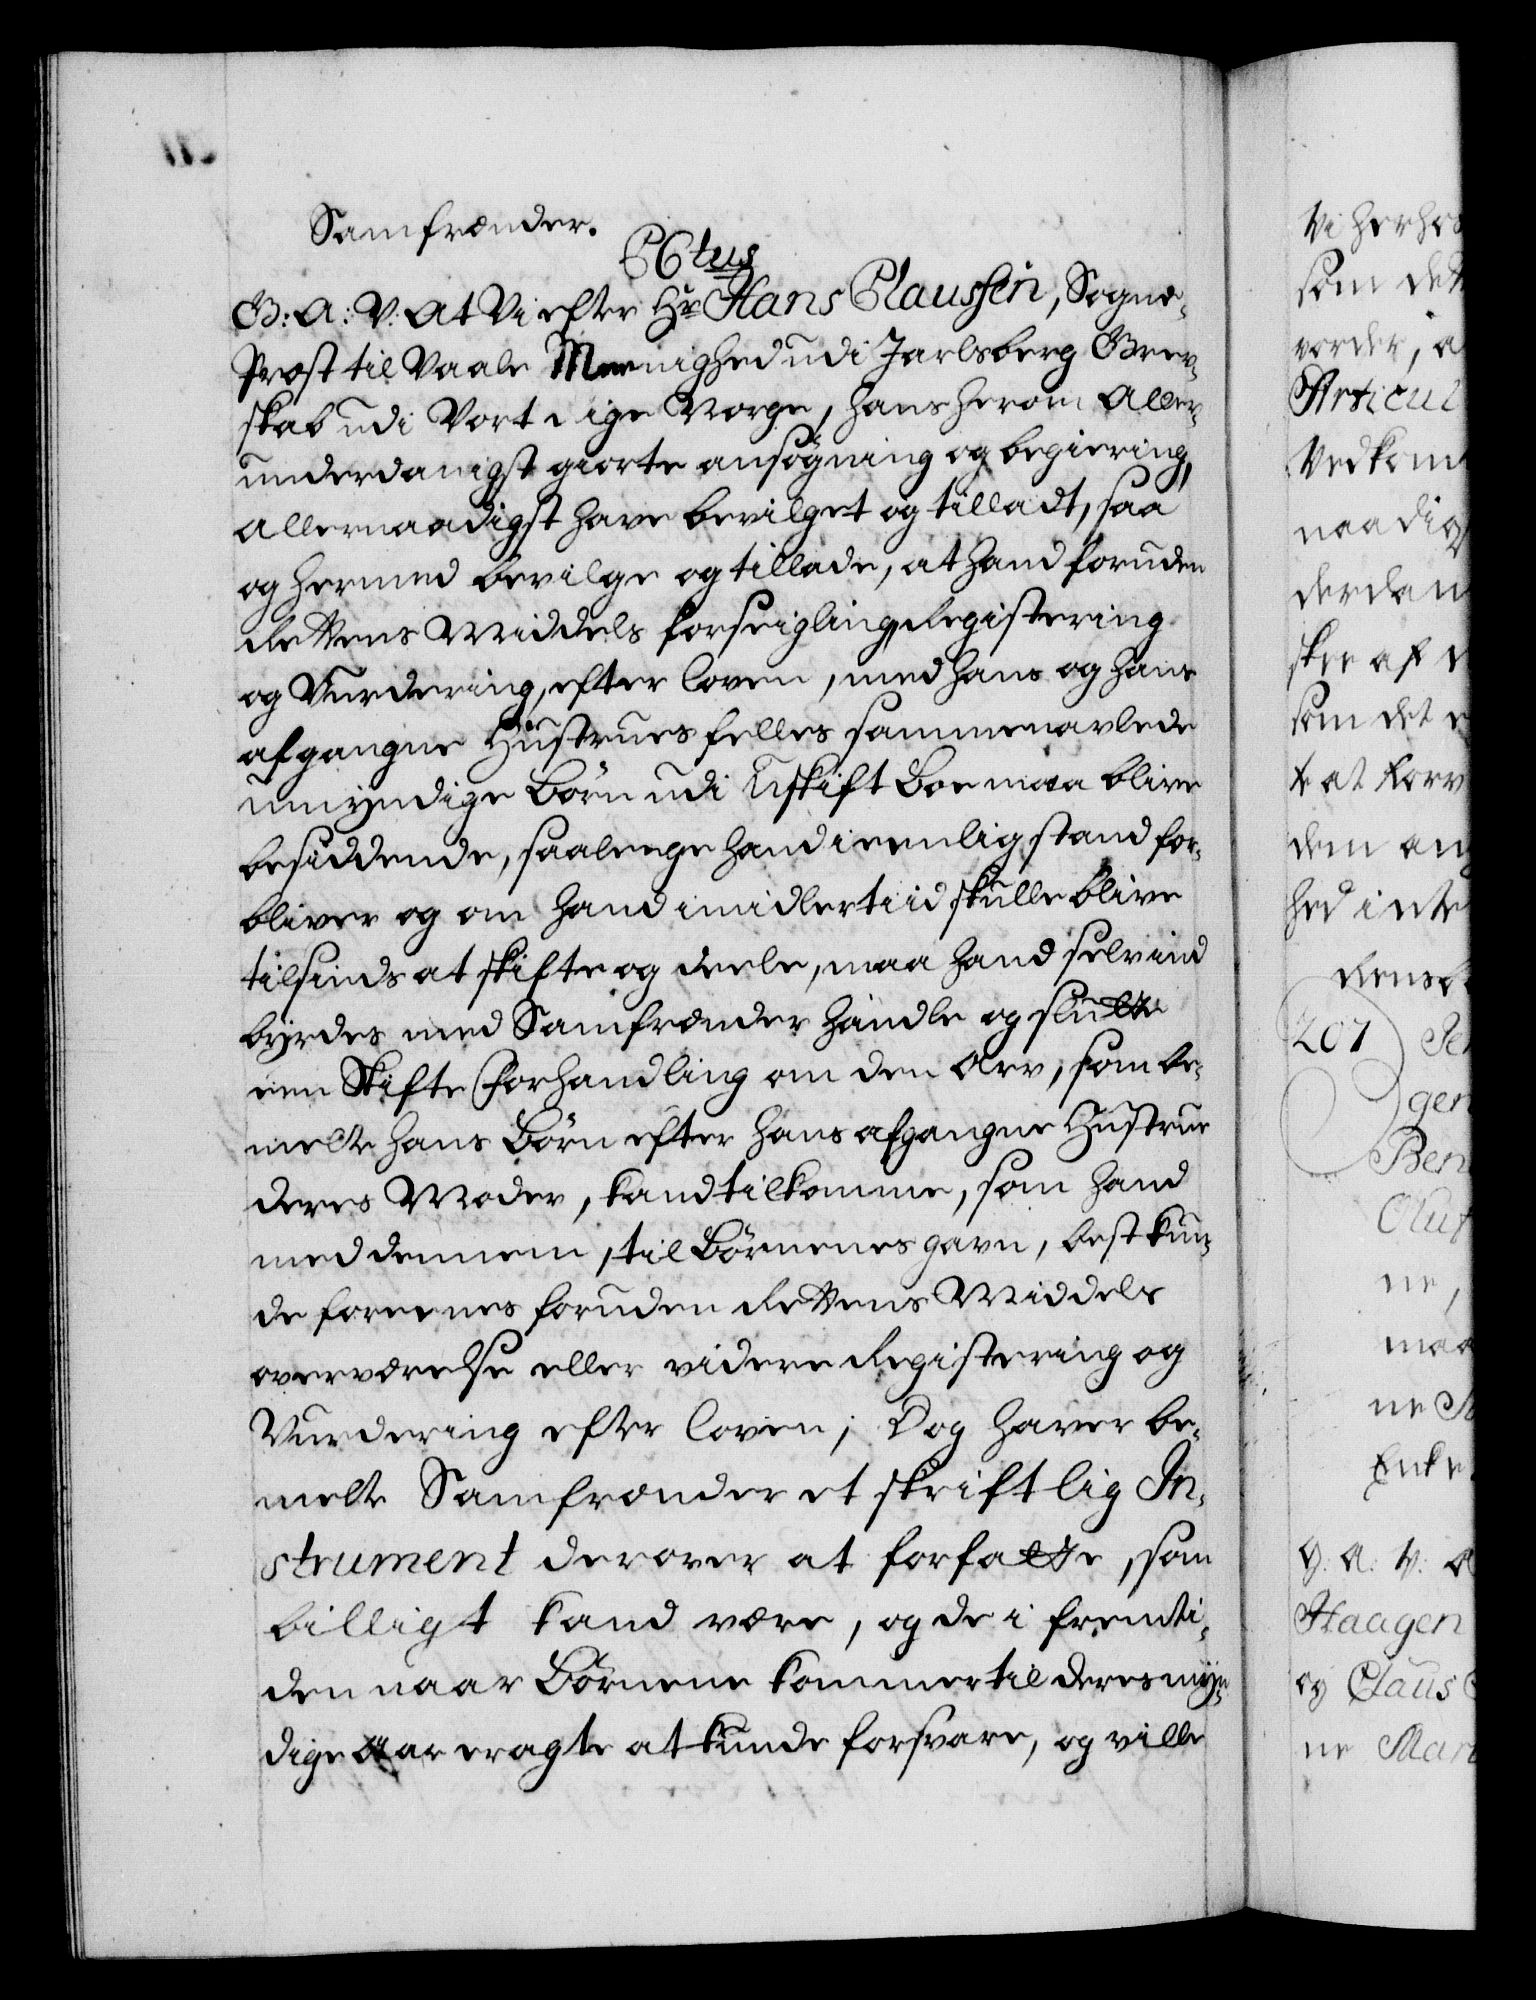 Samfrænder.
PCtus
G: A: V: At Vi efter Hr Hans Claussen, Sogne-
Præst til Vaale Meenighed udi Jarlsberg Grev-
skab udi Vort Rige Norge, hans herom Aller-
underdanigst giorte ansøgning og begiering,
allernaadigst have bevilget og tilladt, saa
og hermed bevilge og tillade, at hand foruden
Rettens Middels forseigling, Registering
og Vurdering, efter loven, med hans og hans
afgangne Hustrues felles sammenavlede
umyndige Børn udi Uskift Boe maa blive
besiddende, saalenge hand i eenlig stand for-
bliver og om hand imidlertiid skulle blive
tilsinds at skifte og deele, maa hand selv ind
byrdes med Samfrænder handle og slutte
een Skifte Forhandling om den Arv, som be-
melte hans Børn efter hans afgangne Hustrue
deres Moder, kand tilkomme, som hand
med dennem, til Børnenes gavn, best kun-
de foreenes foruden Rettens Middels
overværelse eller videre Registering og
Vurdering efter loven; Dog haver be-
melte Samfrænder et skriftlig In-
strument derover at forfatte, som
billigt kand være, og de i fremti-
den naar Børnene kommer til deres myn-
dige Aar eragte at kunde forsvare, og ville
Vi her
som
Articul
naadig
derdan
skee af
som det
207
gen
Ben
Oluf
ne,
maa
ne
Enke
G: A: V: A
Haagen
og Claus
ne Mar